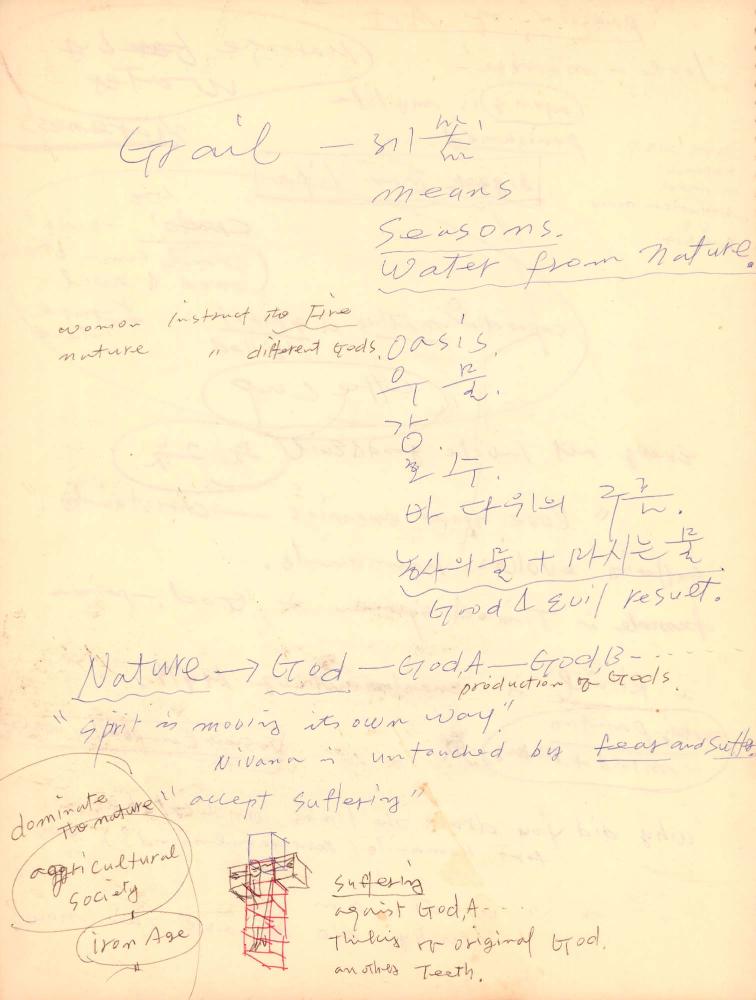 Grail —
means
Seasons.
Water from Nature.
woman instruct the Fire
nature 〃 different Gods.
oasis.
우물.
강.
호수.
바다위의 구름.
농사의 물 + 마시는 물.
Good & Evil result.
Nature → God — God,A — God,B-.....
production of Gods.
"Spirit is moving its own way"
Nivana is untouched by fear and
"accept suffering"
dominate
the nature
aggricultural
society
iron Age
suffering
against God,A-...
Thinking of original God.
another Teeth.